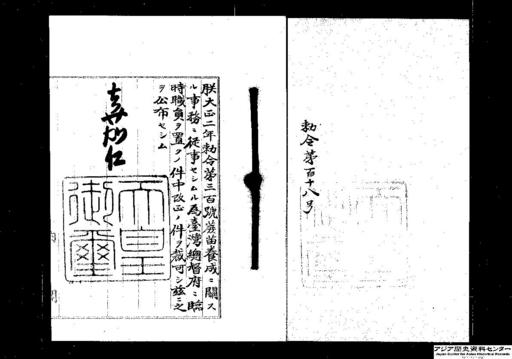 勅令第百十八号
朕大正二年勅令第三百號蔗苗養成ニ關ス
ル事務ニ從事セシムル爲臺灣總督府ニ臨
時職員ヲ置クノ件中改正ノ件ヲ裁可シ茲ニ之
ヲ公布セシム
嘉仁
天皇
御璽
アジア歴史資料センター
Japan Center for Asian Historical Records